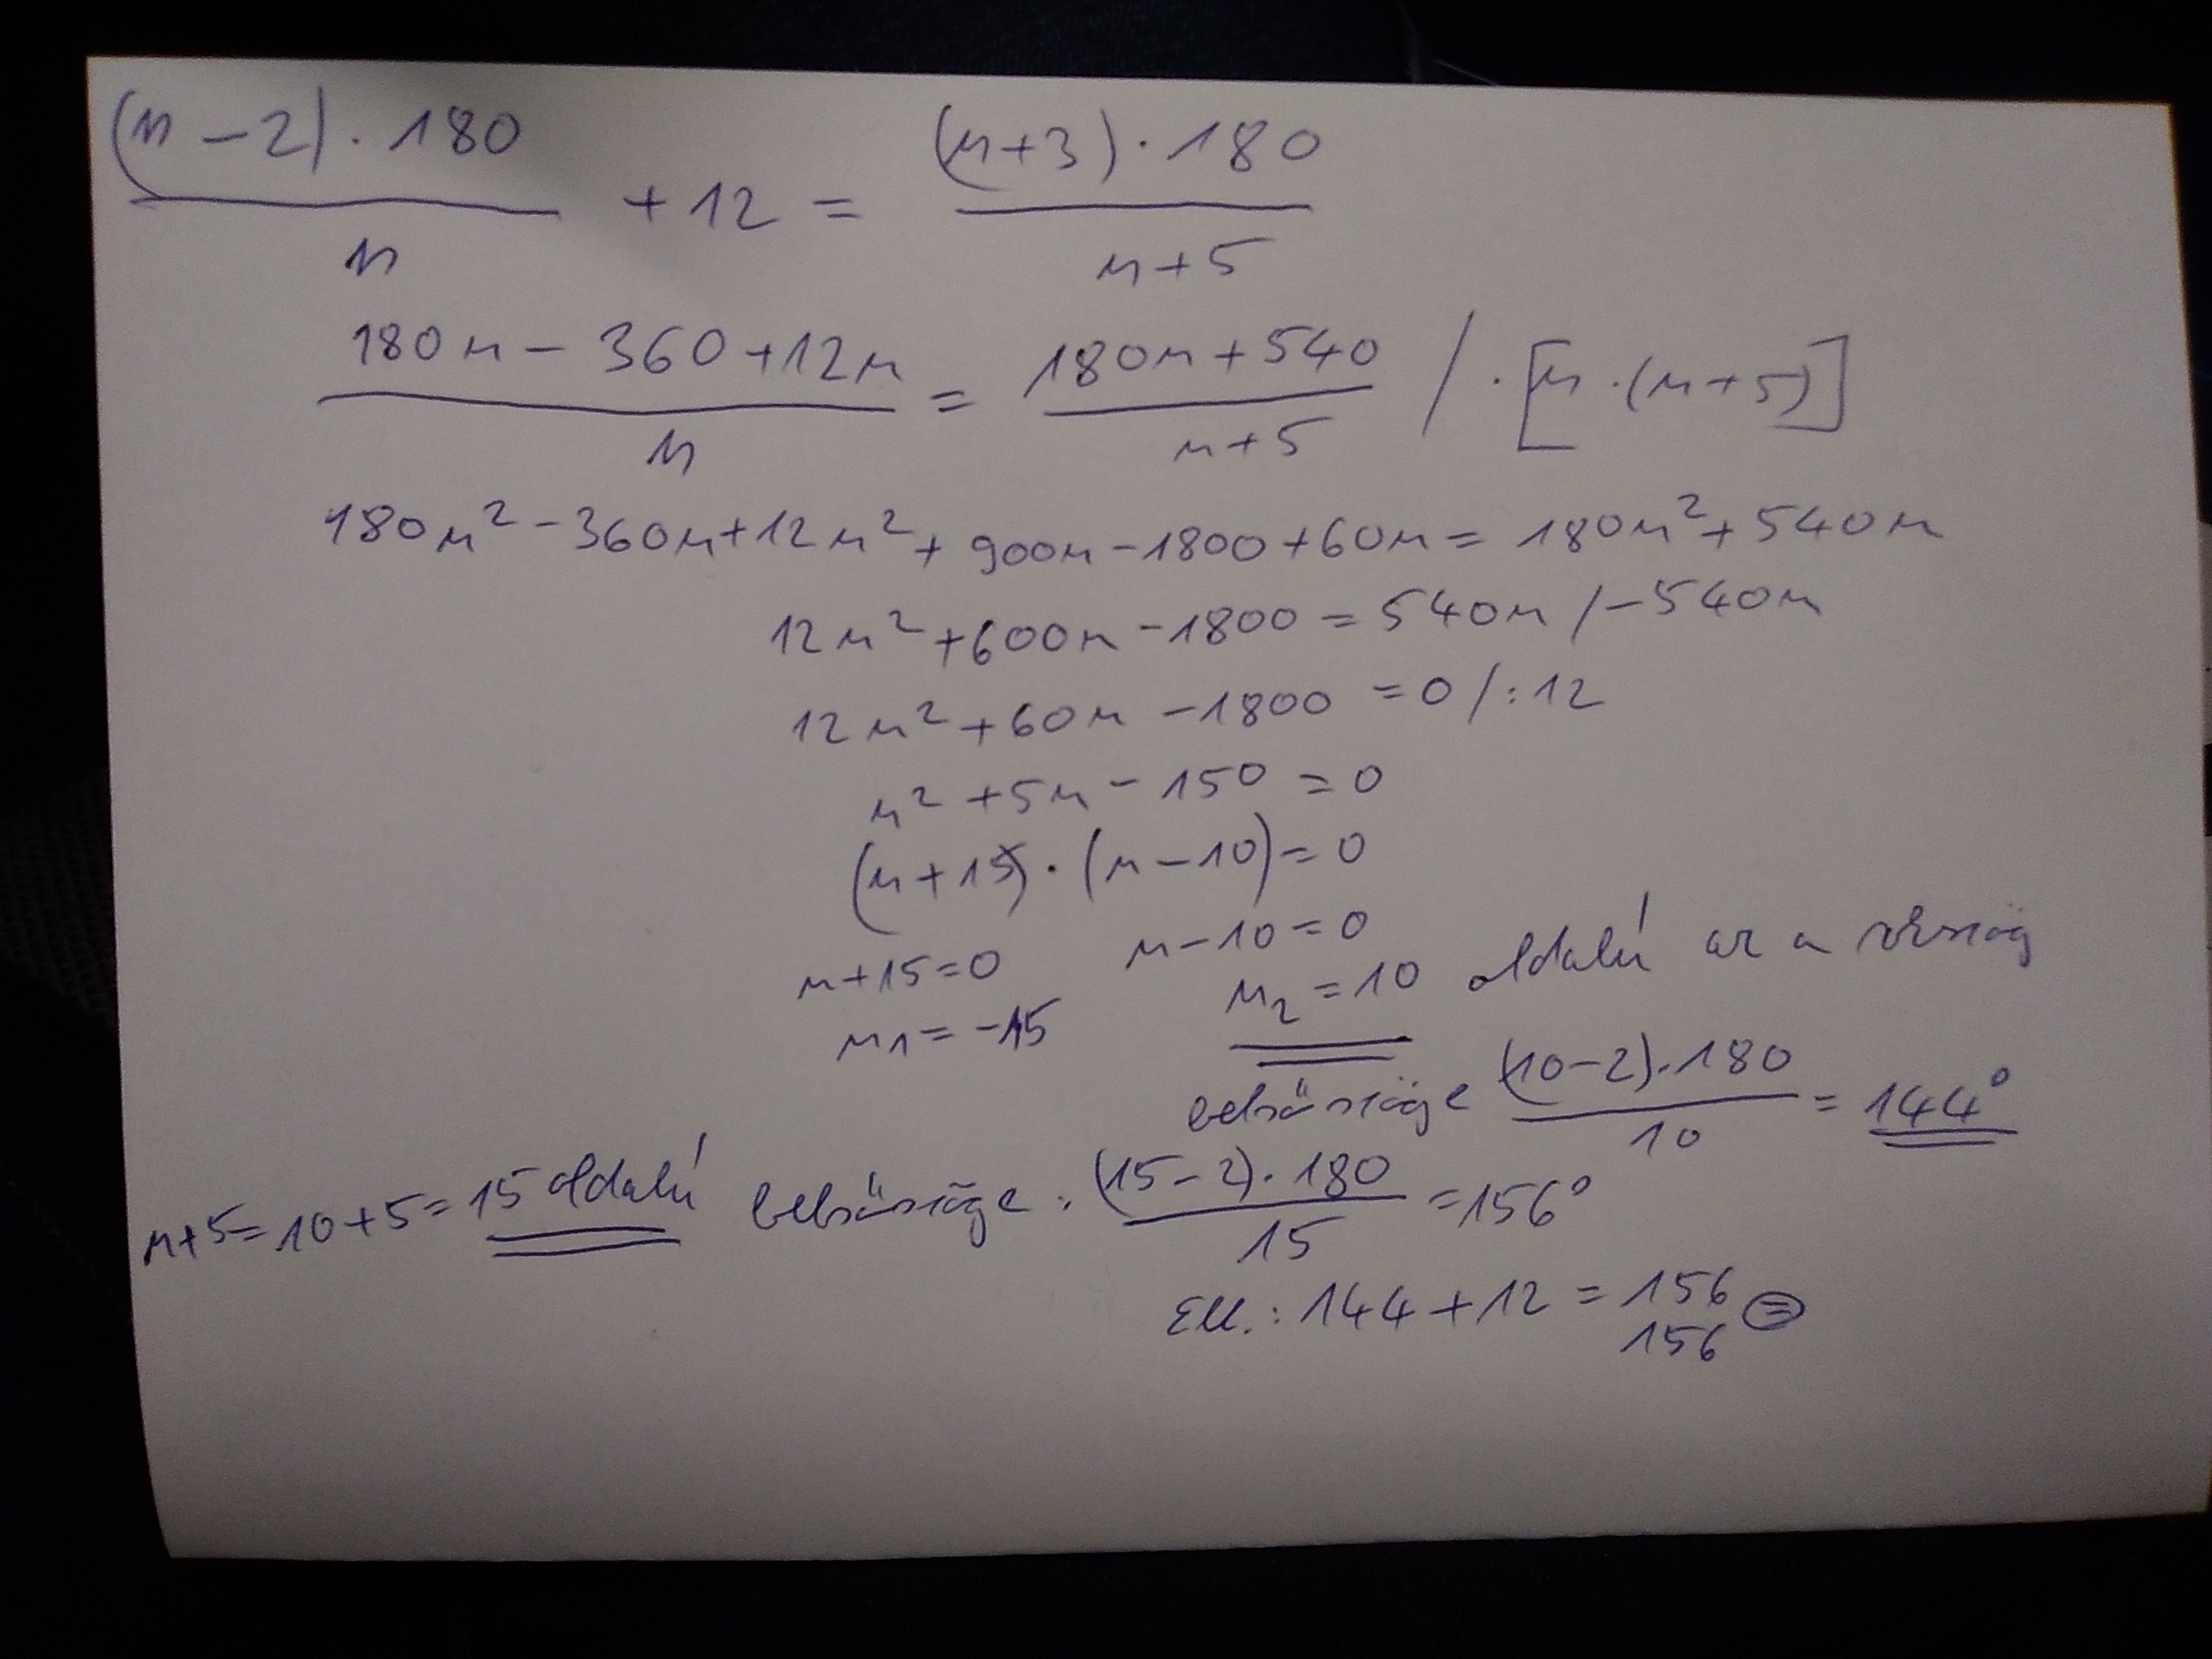 (n-2)·180/n +12 = (n+3)·180/n+5
180n-360+12n/n = 180n+540/n+5 /·[n·(n+5)]
180n²-360n+12n²+900n-1800+60n=180n²+540n
12n²+600n-1800=540n /-540n
12n²+60n-1800=0/:12
n²+5n-150=0
(n+15)·(n-10)=0
n+15=0 n-10=0
n1=-15 n₂=10 oldalú az a
belsőszöge (10-2)·180/10 = 144°
n+5=10+5=15 oldalú belsőszöge: (15-2)·180/15 =156°
Ell.: 144+12=156
156 =